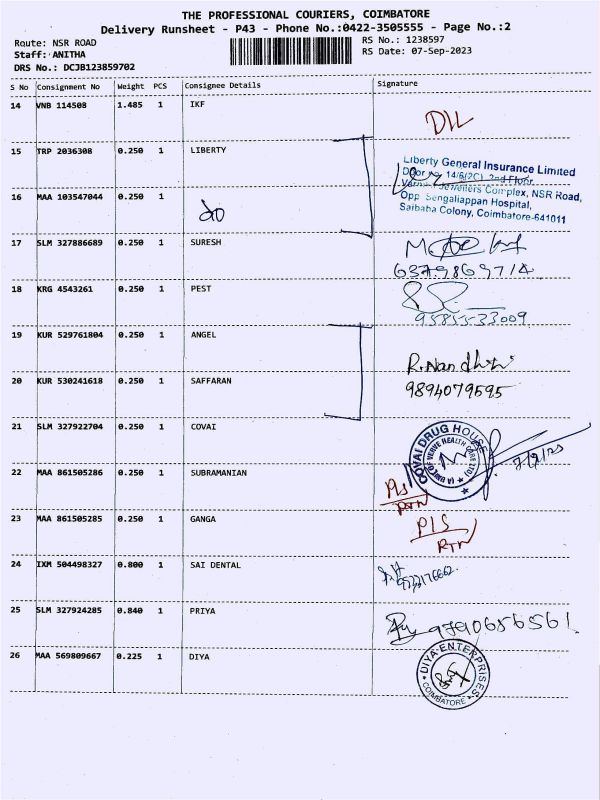 THE PROFESSIONAL COURIERS, COIMBATORE
Delivery Runsheet - P43 - Phone No.:0422-3505555 - Page No.:2
Route: NSR ROAD
RS No.: 1238597
Staff: ANITHA
RS Date: 07-Sep-2023
DRS No.: DCJB123859702
S No Consignment No Weight PCS Consignee Details Signature
14 VNB 114508 1.485 1 IKF
DIL
15 TRP 2036308 0.250 1 LIBERTY
Liberty General Insurance Limited
Door no. 14/6(2C), 2nd Floor,
Jewellers Complex, NSR Road,
Opp. Sengaliappan Hospital,
Saibaba Colony, Coimbatore-641011
16 MAA 103547044 0.250 1
17 SLM 327886689 0.250 1 SURESH
6379869714
18 KRG 4543261 0.250 1 PEST
9585533009
19 KUR 529761804 0.250 1 ANGEL
R.Nandhini
20 KUR 530241618 0.250 1 SAFFARAN
9894079595
21 SLM 327922704 0.250 1 COVAI
COVAI DRUG HOUSE
(A UNIT OF VERVE HEALTH CARE LTD)
22 MAA 861505286 0.250 1 SUBRAMANIAN
PIS
RTN
23 MAA 861505285 0.250 1 GANGA
PIS
RTN
24 IXM 504498327 0.800 1 SAI DENTAL
25 SLM 327924285 0.840 1 PRIYA
9790656561
26 MAA 569809667 0.225 1 DIYA
DIYA ENTERPRISES
COIMBATORE